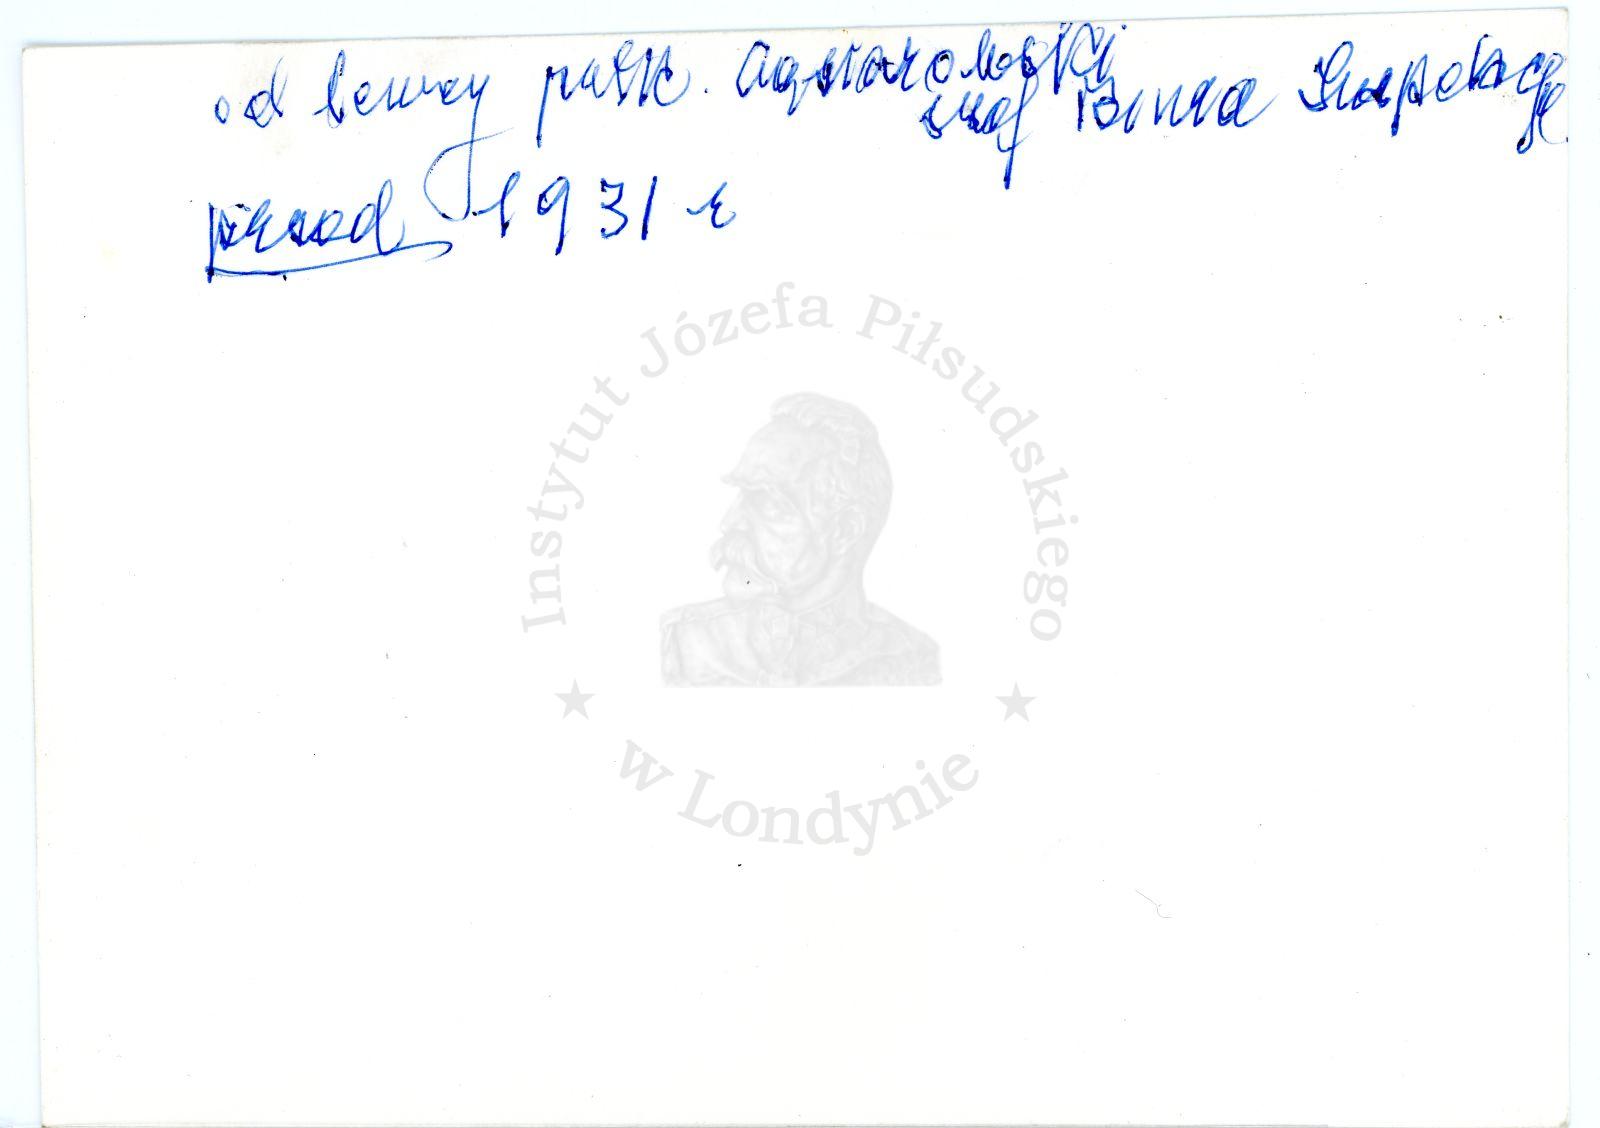 od lewej pułk.
szef Biura Inspekcji
przed 1931 r
Instytut Józefa Piłsudskiego
w Londynie